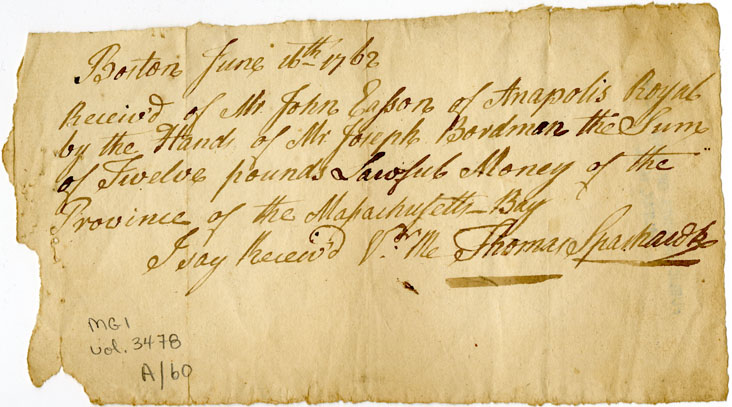 Boston June 16th 1762
Receiv'd of Mr. John Easson of Anapolis Royal
by the Hands of Mr Joseph Bordman the Sum
of Twelve pounds Lawful Money of the
Province of the Massachusetts Bay
I say Receiv'd Pr. Me Thomas Sparhawk
MG1
vol. 3478
A/60